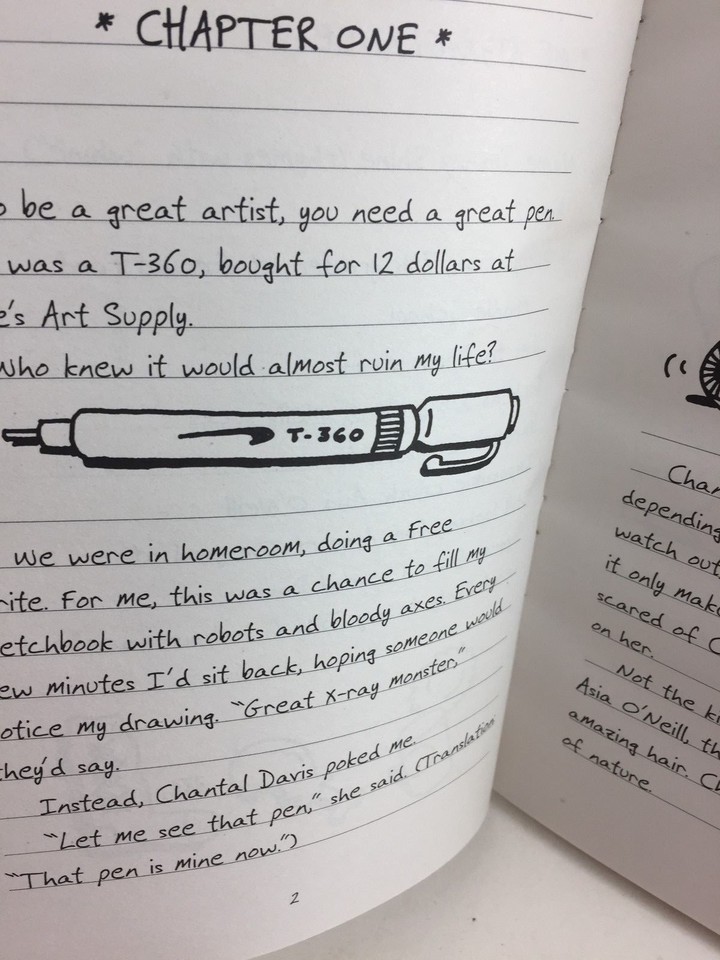 * CHAPTER ONE *
o be a great artist, you need a great pen.
was a T-360, bought for 12 dollars at
e's Art Supply.
Who knew it would almost ruin my life?
T-360
We were in homeroom, doing a Free
rite. For me, this was a chance to fill my
etchbook with robots and bloody axes. Every
ew minutes I'd sit back, hoping someone would
otice my drawing. "Great x-ray monster,"
they'd say.
Instead, Chantal Davis poked me.
"Let me see that pen," she said. (Translation:
"That pen is mine now.")
2
Chan
depending
watch out
it only mak
scared of C
on her.
Not the k
Asia O'Neill, th
amazing hair. Ch
of nature.